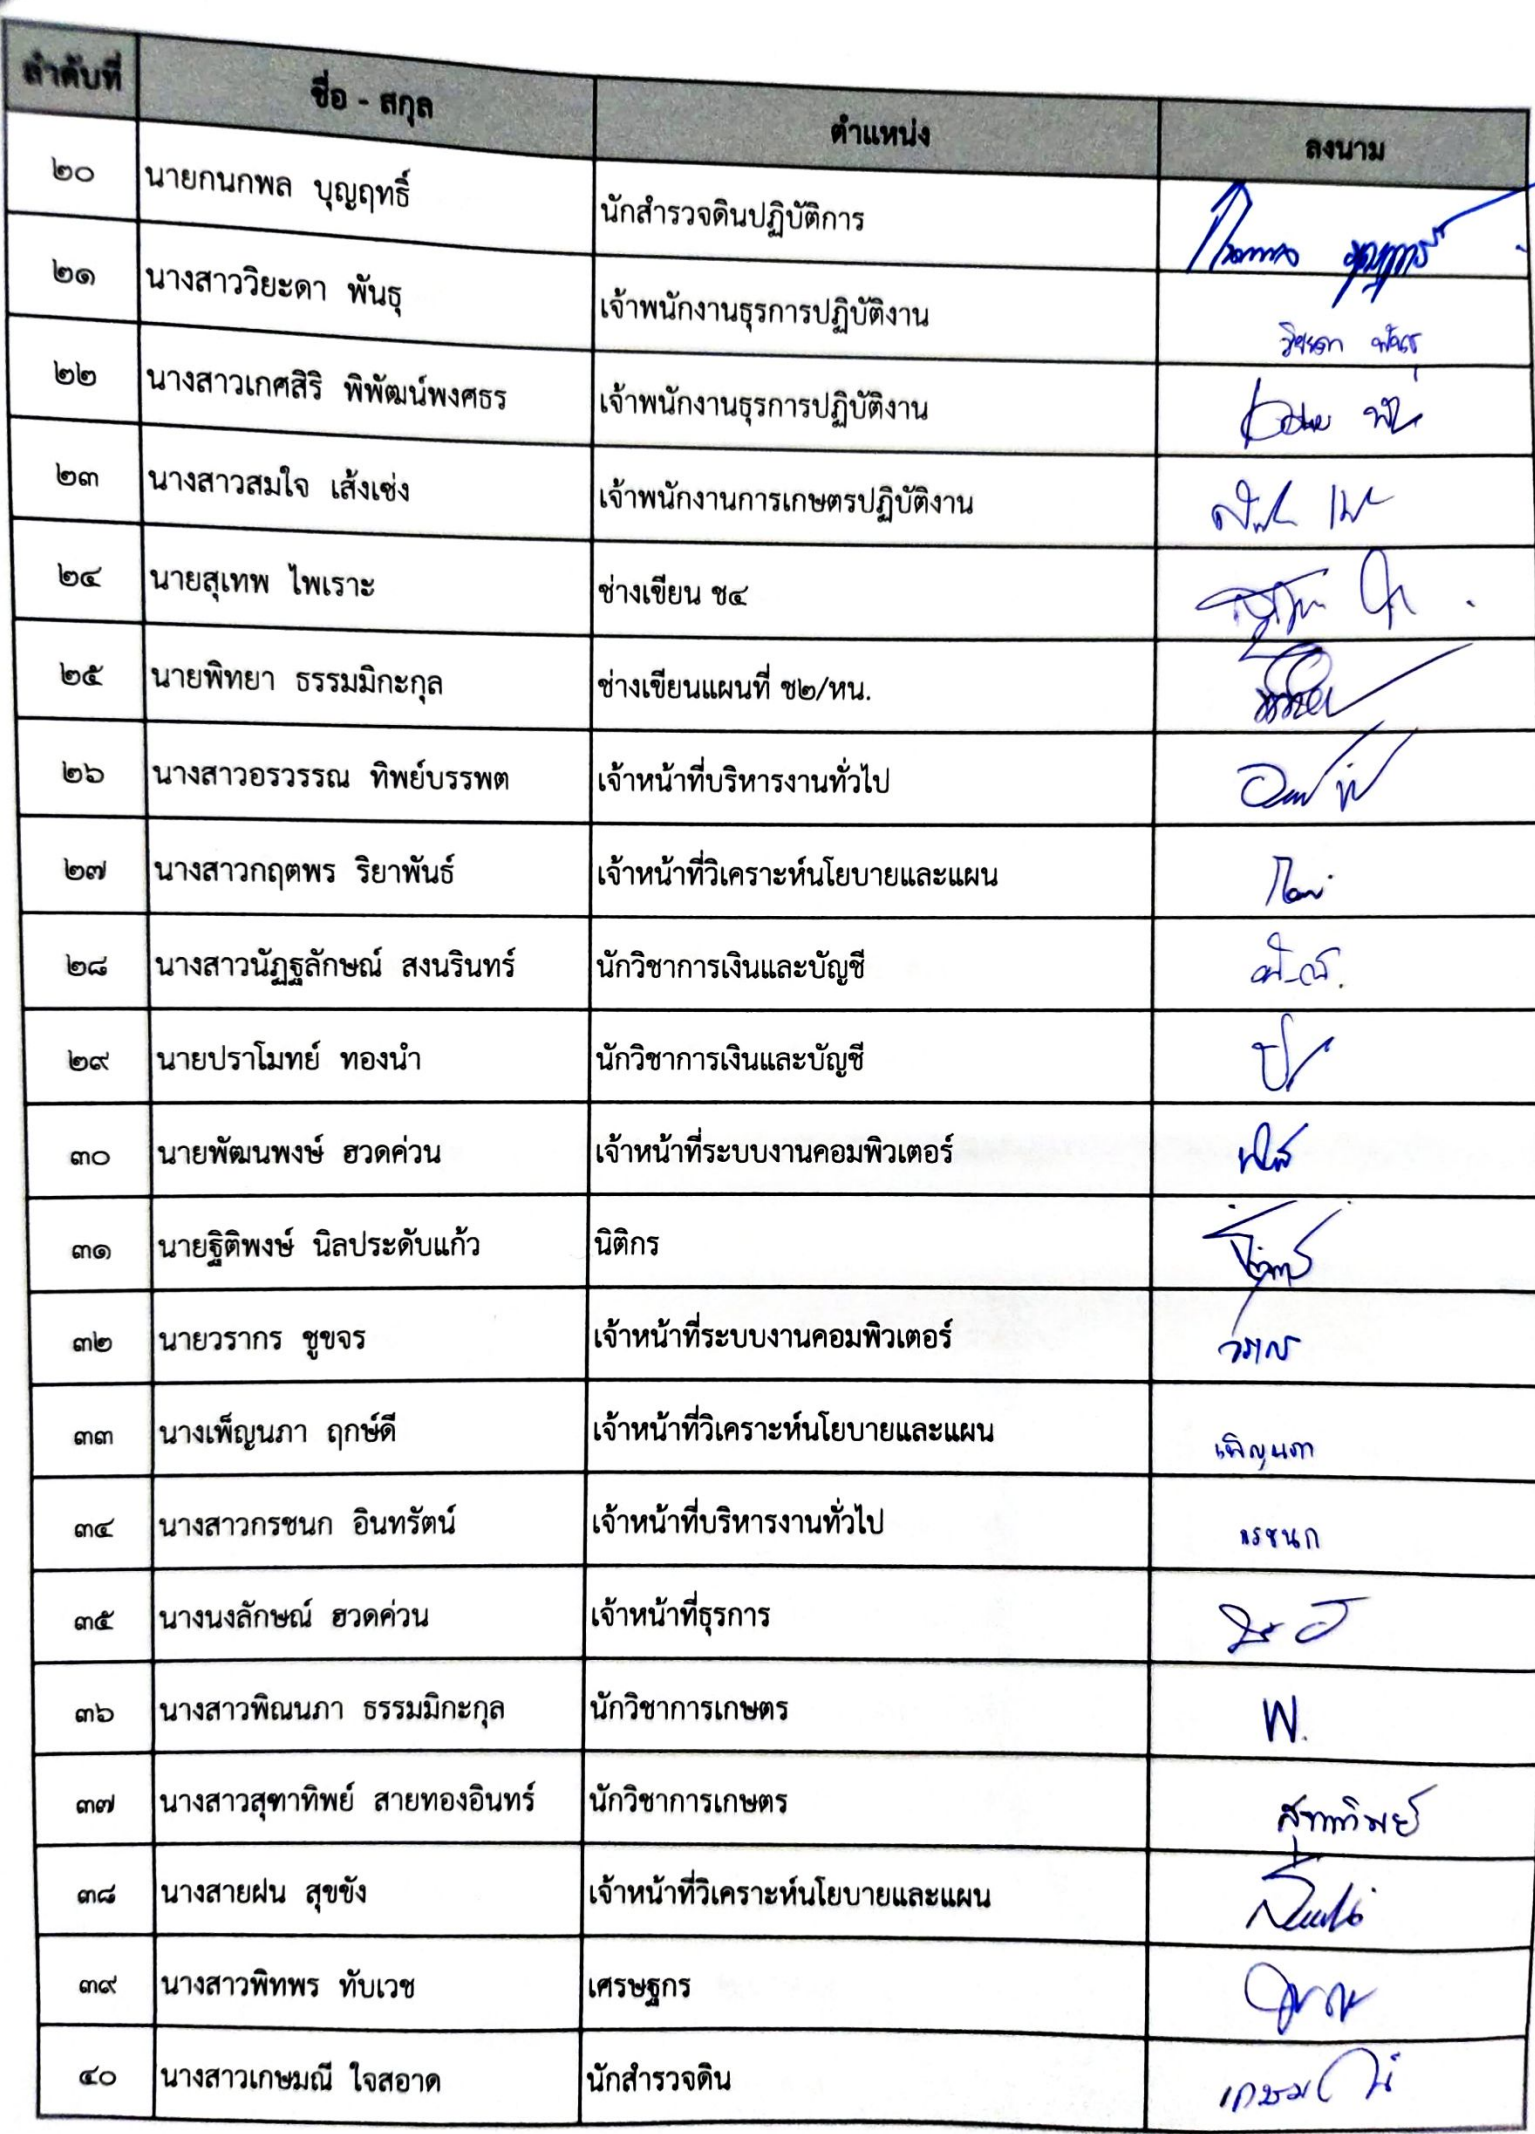 ลำดับที่ ชื่อ - สกุล ตำแหน่ง ลงนาม
๒๐ นายกนกพล บุญฤทธิ์ นักสำรวจดินปฏิบัติการ
๒๑ นางสาววิยะดา พันธุ เจ้าพนักงานธุรการปฏิบัติงาน วิยะดา พันธุ
๒๒ นางสาวเกศสิริ พิพัฒน์พงศธร เจ้าพนักงานธุรการปฏิบัติงาน
๒๓ นางสาวสมใจ เส้งเซ่ง เจ้าพนักงานการเกษตรปฏิบัติงาน
๒๔ นายสุเทพ ไพเราะ ช่างเขียน ช๔
๒๕ นายพิทยา ธรรมมิกะกุล ช่างเขียนแผนที่ ช๒/หน.
๒๖ นางสาวอรวรรณ ทิพย์บรรพต เจ้าหน้าที่บริหารงานทั่วไป
๒๗ นางสาวกฤตพร ริยาพันธ์ เจ้าหน้าที่วิเคราะห์นโยบายและแผน
๒๘ นางสาวนัฏฐลักษณ์ สงนรินทร์ นักวิชาการเงินและบัญชี
๒๙ นายปราโมทย์ ทองนำ นักวิชาการเงินและบัญชี
๓๐ นายพัฒนพงษ์ ฮวดค่วน เจ้าหน้าที่ระบบงานคอมพิวเตอร์
๓๑ นายฐิติพงษ์ นิลประดับแก้ว นิติกร
๓๒ นายวรากร ชูขจร เจ้าหน้าที่ระบบงานคอมพิวเตอร์ วรากร
๓๓ นางเพ็ญนภา ฤกษ์ดี เจ้าหน้าที่วิเคราะห์นโยบายและแผน เพ็ญนภา
๓๔ นางสาวกรชนก อินทรัตน์ เจ้าหน้าที่บริหารงานทั่วไป กรชนก
๓๕ นางนงลักษณ์ ฮวดค่วน เจ้าหน้าที่ธุรการ
๓๖ นางสาวพิณนภา ธรรมมิกะกุล นักวิชาการเกษตร พ.
๓๗ นางสาวสุฑาทิพย์ สายทองอินทร์ นักวิชาการเกษตร สุฑาทิพย์
๓๘ นางสายฝน สุขขัง เจ้าหน้าที่วิเคราะห์นโยบายและแผน
๓๙ นางสาวพิทพร ทับเวช เศรษฐกร
๔๐ นางสาวเกษมณี ใจสอาด นักสำรวจดิน